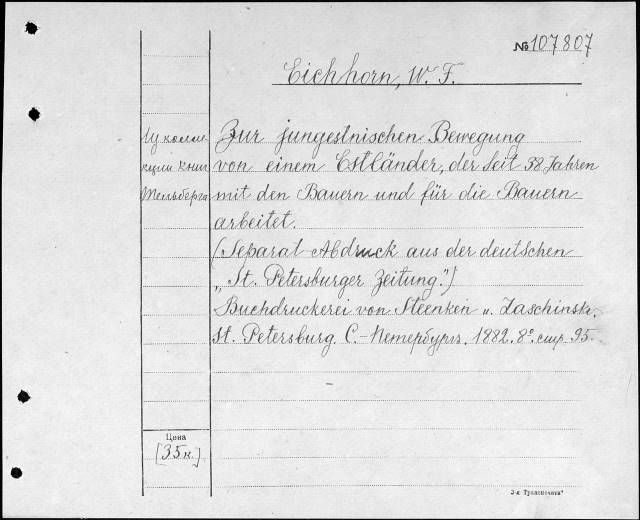 № 107807
Eichhorn, W. F.
Zur jungestnischen Bewegung
von einem Estländer, der seit 38 Jahren
mit den Bauern und für die Bauern
arbeitet.
(Separat-Abdruck aus der deutschen
„St. Petersburger Zeitung“.)
Buchdruckerei von Steenken u.
St. Petersburg. С.-Петербургъ. 1882. 8° стр. 95.
Цена
[35 к.]